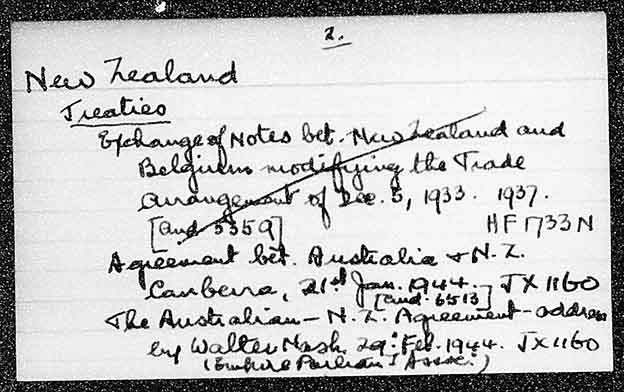 2.
New Zealand
Treaties
Exchange of Notes bet. New Zealand and
Belgium modifying the Trade
arrangement of Dec. 5, 1933. 1937.
[Cmd 5359] HF 1733 N
Agreement bet. Australia & N.Z.
Canberra, 21st Jan. 1944. JX 1160
[Cmd. 6513]
The Australian - N.Z. Agreement - address
by Walter Nash 29: Feb. 1944. JX 1160
(Empire Parliam't Assoc.)